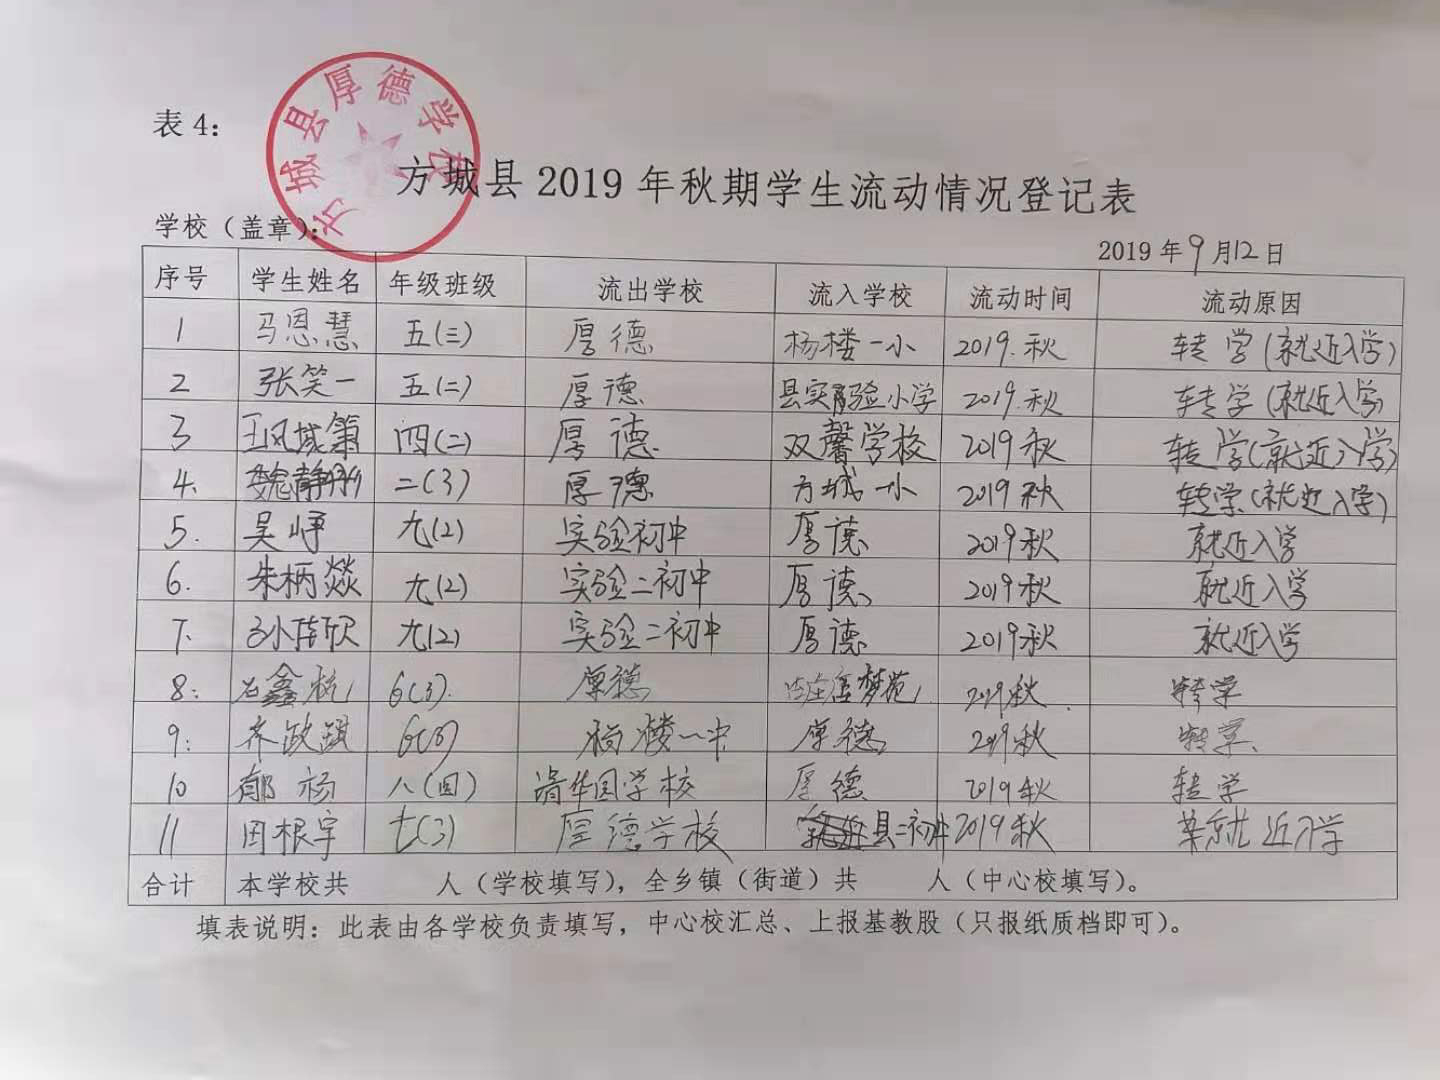 表 4：
方城县厚德学校
方城县 2019 年秋期学生流动情况登记表
学校（盖章）：
2019 年 9 月 12 日
序号 学生姓名 年级班级 流出学校 流入学校 流动时间 流动原因
1 马恩慧 五(三) 厚德 杨楼一小 2019.秋 转学(就近入学)
2 张笑一 五(二) 厚德 县实验小学 2019.秋 转学(就近入学)
3 四(二) 厚德 双馨学校 2019秋 转学(就近入学)
4. 魏静 二(3) 厚德 方城一小 2019秋 转学(就近入学)
5. 吴峥 九(2) 实验初中 厚德 2019秋 就近入学
6. 朱柄燚 九(2) 实验二初中 厚德 2019秋 就近入学
7. 九(2) 实验二初中 厚德 2019秋 就近入学
8: 石鑫杭 6(3). 厚德 2019秋. 转学
9: 齐 6(3) 杨楼一中 厚德 2019秋 转学
10 郁杨 八(四) 清华园学校 厚德 2019秋 转学
11 田根宇 七(3) 厚德学校 县二初中 2019秋 就近入学
合计 本学校共 人（学校填写），全乡镇（街道）共 人（中心校填写）。
填表说明：此表由各学校负责填写，中心校汇总、上报基教股（只报纸质档即可）。